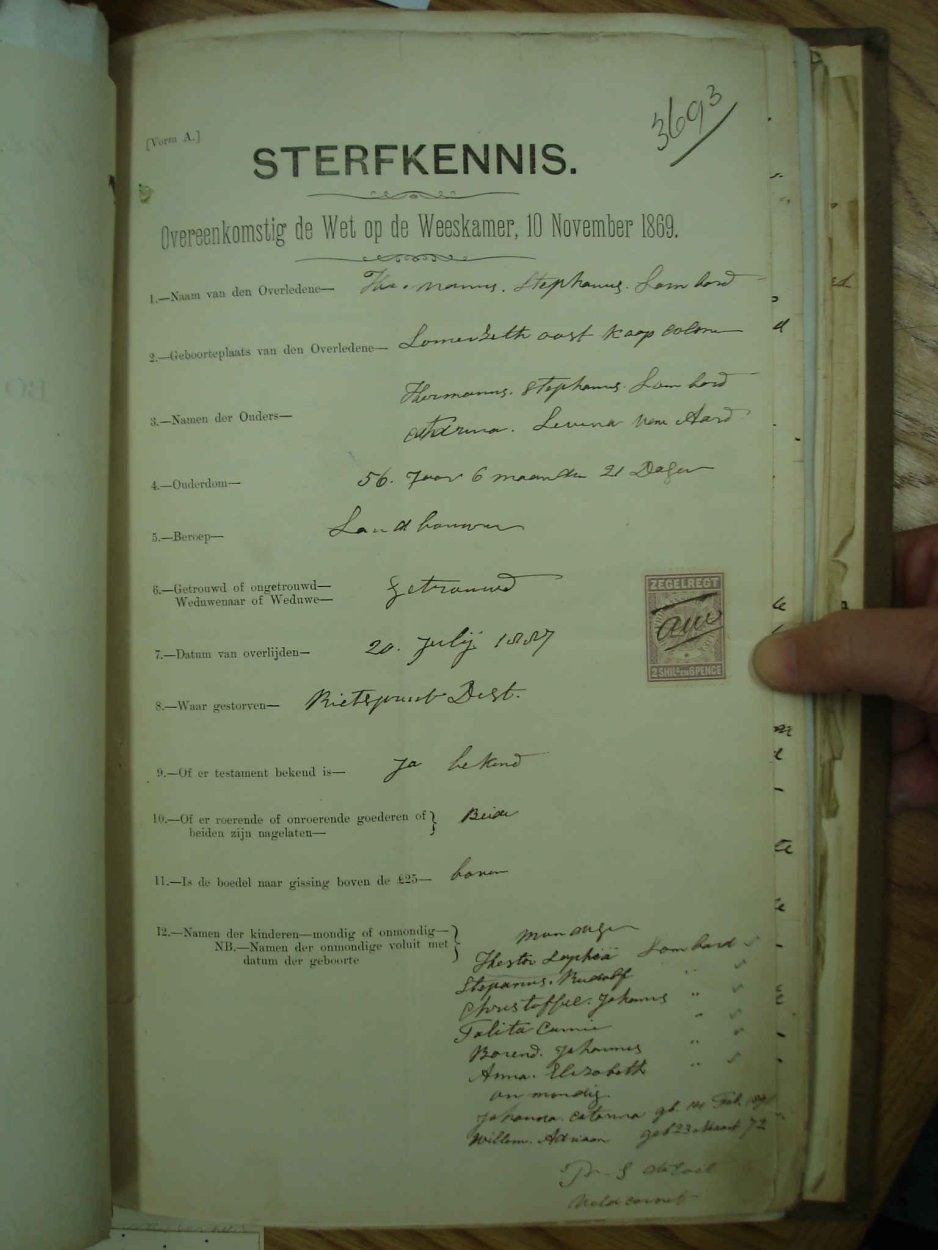 3693
[Vorm A.]
STERFKENNIS.
Overeenkomstig de Wet op de Weeskamer, 10 November 1869.
1.—Naam van den Overledene— Stephanus. Lombard
2.—Geboorteplaats van den Overledene— oost Kaap
3.—Namen der Ouders— Hermanus. Stephanus. Lombard
Levina van Aard
4.—Ouderdom— 56. Jaar 6 maanden 21 Dagen
5.—Beroep— Landbouwer
6.—Getrouwd of ongetrouwd— getrouwd
Weduwenaar of Weduwe—
7.—Datum van overlijden— 20. Julij 1887
8.—Waar gestorven— Rietspruit Dist.
9.—Of er testament bekend is— Ja bekend
10.—Of er roerende of onroerende goederen of } Beide
beiden zijn nagelaten—
11.—Is de boedel naar gissing boven de £25— boven
12.—Namen der kinderen—mondig of onmondig—
NB.—Namen der onmondige voluit met
datum der geboorte
mondige
Hester Sophia Lombard
Stepanus. Rudolf "
Christoffel. Johannis "
Talita Cumie "
Barend. Johannis "
Anna. Elizabeth "
on mondig
Johanna. gb. Feb.
Willem. Adriaan geb 23 Maart 72
Veldcornet
ZEGELREGT
2 SHILS EN 6 PENCE